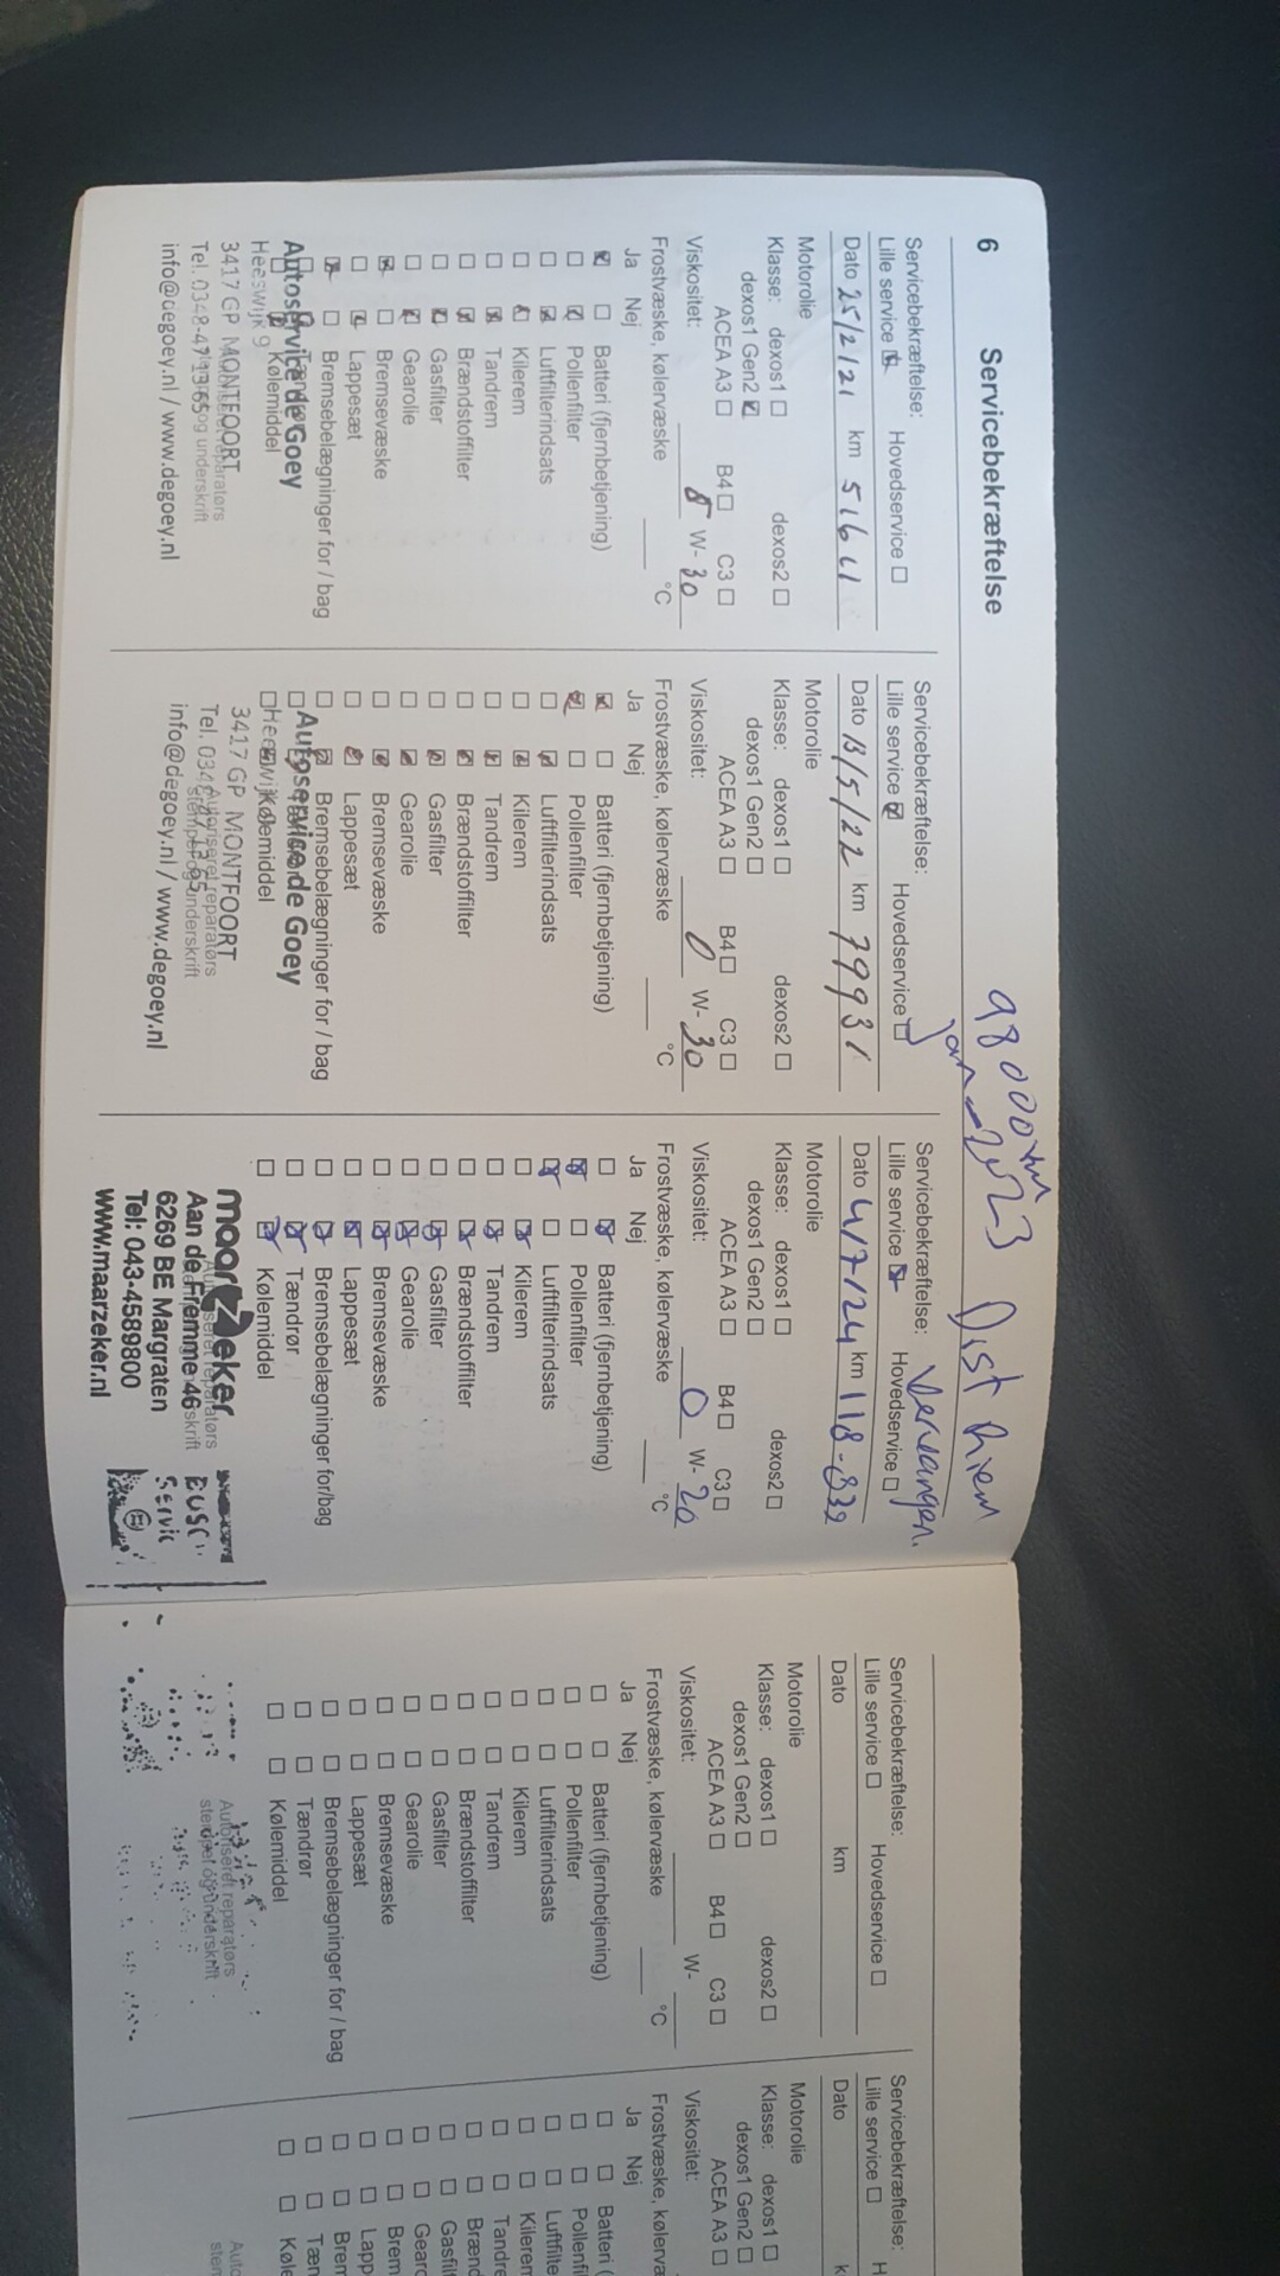 6 Servicebekræftelse
98000km Dist riem
Jan-2023 Vervangen.
Servicebekræftelse:
Lille service ☑ Hovedservice ☐
Dato 25/2/21 km 51611
Motorolie
Klasse: dexos1 ☐ dexos2 ☐
dexos1 Gen2 ☑
ACEA A3 ☐ B4 ☐ C3 ☐
Viskositet: W-30
Frostvæske, kølervæske °C
Ja Nej
☑ ☐ Batteri (fjernbetjening)
☐ ☑ Pollenfilter
☐ ☑ Luftfilterindsats
☐ ☑ Kilerem
☐ ☑ Tandrem
☐ ☑ Brændstoffilter
☐ ☑ Gasfilter
☐ ☑ Gearolie
☑ ☐ Bremsevæske
☐ ☑ Lappesæt
☑ ☐ Bremsebelægninger for / bag
Tændrør
Kølemiddel
Autoservice de Goey
Heeswijk 9
3417 GP MONTFOORT
Tel. 0348-471365
info@degoey.nl / www.degoey.nl
Servicebekræftelse:
Lille service ☑ Hovedservice ☐
Dato 13/5/22 km 79931
Motorolie
Klasse: dexos1 ☐ dexos2 ☐
dexos1 Gen2 ☐
ACEA A3 ☐ B4 ☐ C3 ☐
Viskositet: 0 W-30
Frostvæske, kølervæske °C
Ja Nej
☑ ☐ Batteri (fjernbetjening)
☑ ☐ Pollenfilter
☐ ☑ Luftfilterindsats
☐ ☑ Kilerem
☐ ☑ Tandrem
☐ ☑ Brændstoffilter
☐ ☑ Gasfilter
☐ ☑ Gearolie
☐ ☑ Bremsevæske
☐ ☑ Lappesæt
☐ ☑ Bremsebelægninger for / bag
Kølemiddel
Autoservice de Goey
3417 GP MONTFOORT
Autoriseret reparatørs
stempel og underskrift
info@degoey.nl / www.degoey.nl
Servicebekræftelse:
Lille service ☑ Hovedservice ☐
Dato 4/7/24 km 118-839
Motorolie
Klasse: dexos1 ☐ dexos2 ☐
dexos1 Gen2 ☐
ACEA A3 ☐ B4 ☐ C3 ☐
Viskositet: 0 W-20
Frostvæske, kølervæske °C
Ja Nej
☐ ☑ Batteri (fjernbetjening)
☑ ☐ Pollenfilter
☑ ☐ Luftfilterindsats
☐ ☑ Kilerem
☐ ☑ Tandrem
☐ ☑ Brændstoffilter
☐ ☑ Gasfilter
☐ ☑ Gearolie
☐ ☑ Bremsevæske
☐ ☑ Lappesæt
☐ ☑ Bremsebelægninger for/bag
☐ ☑ Tændrør
☐ ☑ Kølemiddel
maarZeker
Aan de Fremme 46
6269 BE Margraten
Tel: 043-4589800
www.maarzeker.nl
Servicebekræftelse:
Lille service ☐ Hovedservice ☐
Dato km
Motorolie
Klasse: dexos1 ☐ dexos2 ☐
dexos1 Gen2 ☐
ACEA A3 ☐ B4 ☐ C3 ☐
Viskositet: W-
Frostvæske, kølervæske °C
Ja Nej
☐ ☐ Batteri (fjernbetjening)
☐ ☐ Pollenfilter
☐ ☐ Luftfilterindsats
☐ ☐ Kilerem
☐ ☐ Tandrem
☐ ☐ Brændstoffilter
☐ ☐ Gasfilter
☐ ☐ Gearolie
☐ ☐ Bremsevæske
☐ ☐ Lappesæt
☐ ☐ Bremsebelægninger for / bag
☐ ☐ Tændrør
☐ ☐ Kølemiddel
Autoriseret reparatørs
stempel og underskrift
Servicebekræftelse:
Lille service ☐ H
Dato k
Motorolie
Klasse: dexos1 ☐
dexos1 Gen2 ☐
ACEA A3 ☐
Viskositet:
Frostvæske, kølervæ
Ja Nej
☐ ☐ Batteri (
☐ ☐ Pollenfi
☐ ☐ Luftfilte
☐ ☐ Kilerem
☐ ☐ Tandre
☐ ☐ Brænd
☐ ☐ Gasfil
☐ ☐ Gearo
☐ ☐ Brem
☐ ☐ Lapp
☐ ☐ Brem
☐ ☐ Tæn
☐ ☐ Køle
Auto
stem